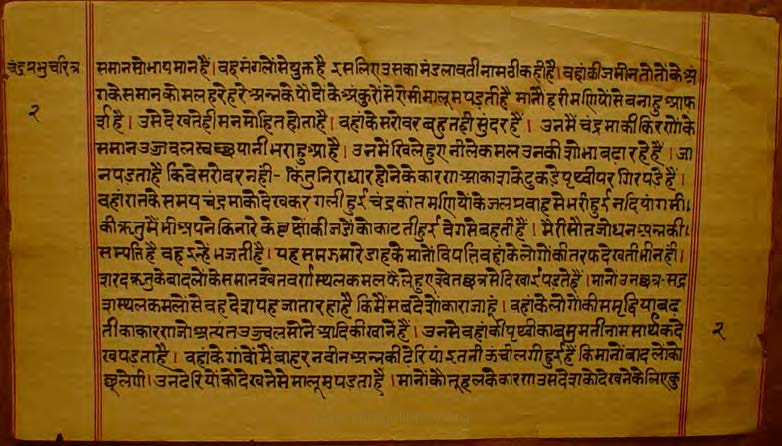 चंद्रप्रभुचरित्र
२
समानसोभायमानहैं। वहमंगलोंसेयुक्तहै इसलिएउसकामंडलावतीनामठीकहीहै। वहांकीजमीनतोतोंकेअं
गकेसमानकोमलहरेहरेअन्नकेपौदोंकेअंकुरोंसेऐसीमालूमपड़तीहै मानोंहरीमणियोंसेबनाहुआफ
र्शहै। उसेदेखतेहीमनमोहितहोताहै। वहांकेसरोवरबहुतहीसुंदरहैं। उनमेंचंद्रमाकीकिरणोंके
समानउज्जवलस्वच्छपानीभराहुआहै। उनमेंखिलेहुएनीलेकमलउनकीशोभाबढ़ारहेहैं। जा
नपड़ताहैकिवेसरोवरनहीं- किंतुनिराधारहोनेकेकारणआकाशकेटुकड़ेपृथ्वीपरगिरपड़ेहैं।
वहांरातकेसमयचंद्रमाकोदेखकरगलीहुईचंद्रकांतमणियोंकेजलप्रवाहसेभरीहुईनदियांगर्मी।
कीऋतुमेंभीअपनेकिनारेकेवृक्षोंकीजड़ोंकोकाटतीहुईवेगसेबहतीहैं। मेरीसौतजोधनअन्नकी।
सम्पत्तिहैवहइन्हेंभजतीहै। यहसमझमारेडाहकेमानोंविपत्तिवहांकेलोगोंकीतरफदेखतीभीनहीं।
शरदऋतुकेबादलोंकेसमानश्वेतवर्णस्थलकमलफैलेहुएश्वेतछत्रसेदिखाईपड़तेहैं। मानोंउनछत्र-सदृ
शस्थलकमलोंसेवहदेशयहजतारहाहैकिमैंसबदेशोंकाराजाहूं। वहांकेलोगोंकीसमृद्धियांबढ़
तीकाकारणजोअत्यंतउज्वलसोनेआदिकीखानेंहैं। उनसेवहांकीपृथ्वीकाबसुमतीनामसार्थकदे
खपड़ताहै। वहांकेगांवोंमेंबाहरनवीनअन्नकीढेरियांइतनीऊंचीलगीहुईहैंकिमानोंबादलोंको
छूलेंगी। उनढेरियोंकोदेखनेसेमालूमपड़ताहै। मानोंकौतूहलकेकारणउसदेशकोदेखनेकेलिएकु
२